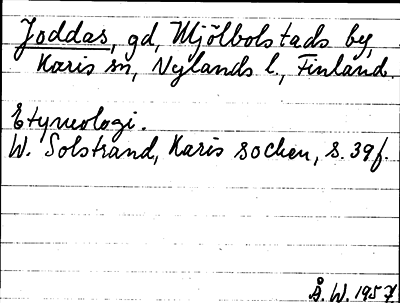 Joddas, gd, Mjölbolstads by,
Karis sn, Nylands l., Finland.
Etymologi.
W. Solstrand, Karis socken, s. 39f.
Å. W. 1957